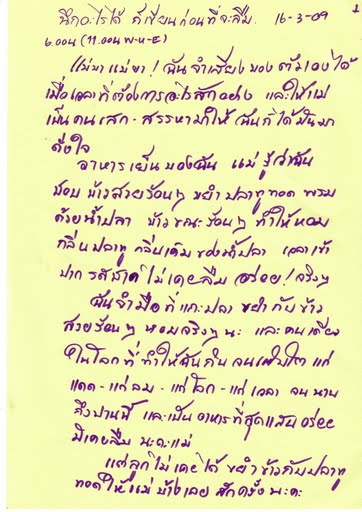 นึกอะไรได้ ก็เขียนก่อนที่จะลืม. 16-3-09
1
๖.00น (11.00น
แม่ขา แม่ขา! ฉันจำเสียงของตัวเองได้
เมื่อเวลาที่ต้องการอะไรสักอย่าง และใช้แม่
เป็นคนเสก-สรรหามาให้ ฉันก็ได้มันมา
ดั่งใจ
อาหารเย็นของฉัน แม่รู้ว่าฉัน
ชอบ ข้าวสวยร้อนๆ ขยำ ปลาทูทอด พรม
ด้วยน้ำปลา ข้าวขณะร้อนๆ ทำให้หอม
กลิ่นปลาทู กลิ่นเค็มของน้ำปลา เวลาเข้า
ปาก รสชาดไม่เคยลืม อร่อย! จริงๆ
ฉันจำมือที่แกะปลา ขยำกับข้าว
สวยร้อนๆ หอมจริงๆ นะ และคนเดียว
ในโลกที่ทำให้ฉันกิน จนเติบโต แก่
แดด-แก่ลม-แก่โลก-แก่เวลา จนนาน
ถึงปานนี้ และเป็นอาหารที่สุดแสนอร่อย
มิเคยลืม นะคะแม่
แต่ลูกไม่เคยได้ ขยำข้าวกับปลาทู
ทอดให้แม่บ้างเลย สักครั้งนะคะ